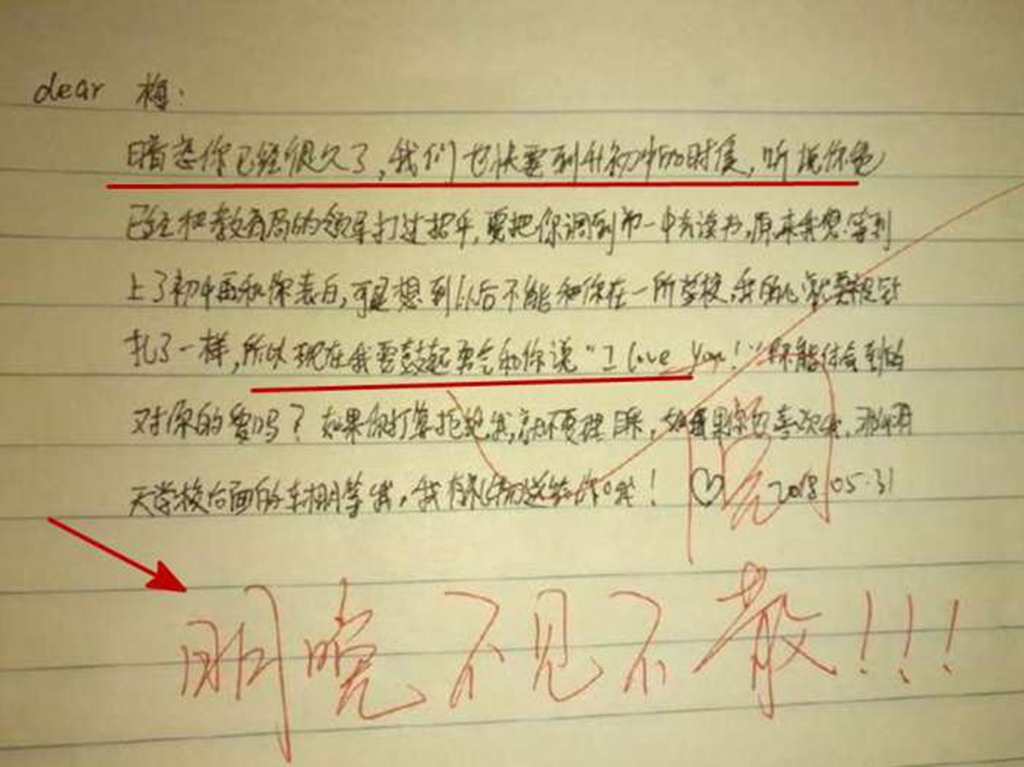 dear 梅：
暗恋你已经很久了，我们也快要到升初中的时候，听说你爸
已经和教育局的领导打过招乎，要把你调到市一中去读书，原来我想等到
上了初中再和你表白，可是想到以后不能和你在一所学校，我的心就要被针
扎了一样，所以现在我要鼓起勇气和你说“I love You！”你能体会到的
对你的爱吗？如果你打算拒绝我，就不要理睬，如果你也喜欢我，那明
天学校后面的车棚等我，我有礼物送给你哦！ ♡ 2018.05.31
阅
明晚不见不散!!!